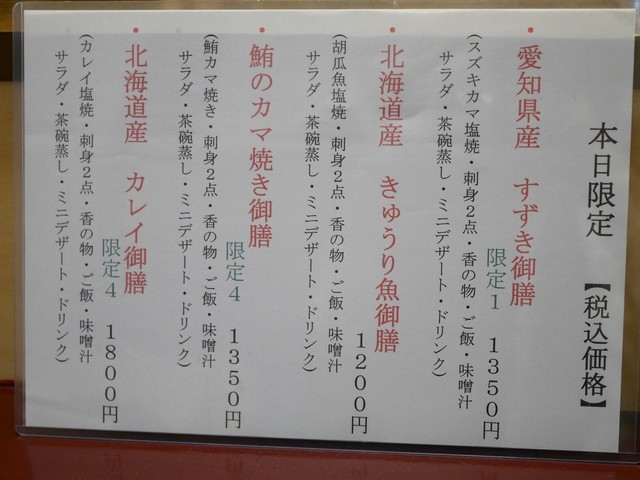 本日限定 【税込価格】
・愛知県産 すずき御膳
限定1 1350円
(スズキカマ塩焼・刺身2点・香の物・ご飯・味噌汁
サラダ・茶碗蒸し・ミニデザート・ドリンク)
・北海道産 きゅうり魚御膳
1200円
(胡瓜魚塩焼・刺身2点・香の物・ご飯・味噌汁
サラダ・茶碗蒸し・ミニデザート・ドリンク)
・鮪のカマ焼き御膳
限定4 1350円
(鮪カマ焼き・刺身2点・香の物・ご飯・味噌汁
サラダ・茶碗蒸し・ミニデザート・ドリンク)
・北海道産 カレイ御膳
限定4 1800円
(カレイ塩焼・刺身2点・香の物・ご飯・味噌汁
サラダ・茶碗蒸し・ミニデザート・ドリンク)